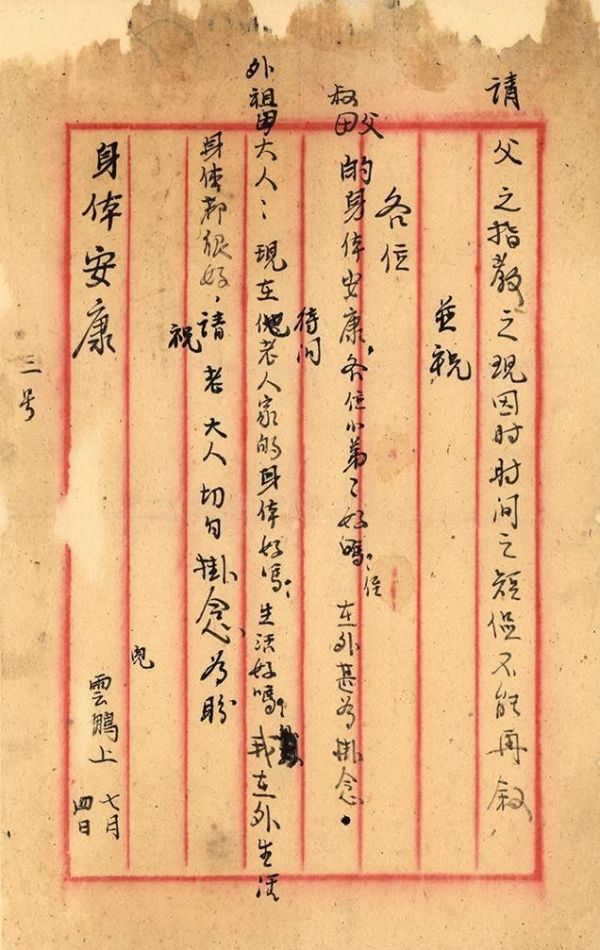 請父之指教之現因时时间之短促不能再叙,
並祝
各位
叔田父的身体安康,各位小弟〻好嗎;侄在外甚为掛念。
待问
外祖母大人:現在他老人家的身体好嗎;生活好嗎;我在外生活
身体都很好,請老大人切勿掛念为盼
祝
身体安康
兒
雲鵬上
七月
四日
三号